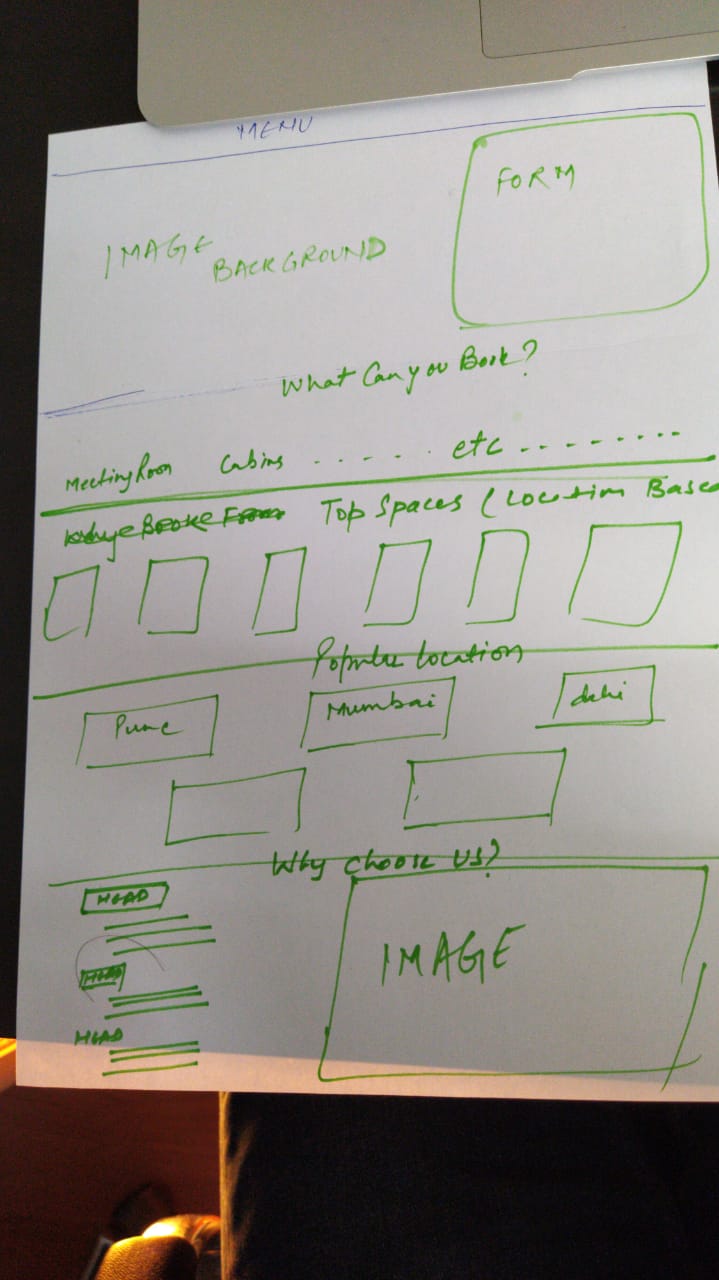 MENU
FORM
IMAGE
BACKGROUND
What Can you Book?
Meeting Room Cabins . . . . . . etc . . . . . . . . .
Top Spaces (Location Base
Location
Pune Mumbai delhi
Why Choose US?
HEAD
IMAGE
HEAD
HEAD